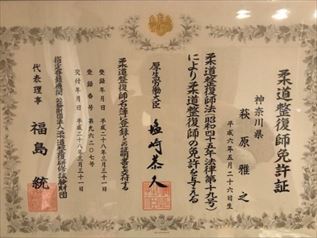 柔道整復師免許証
神奈川県
萩原雅之
平成六年五月二十六日生
柔道整復師法(昭和四十五年法律第十九号)
により柔道整復師の免許を与える
厚生労働大臣 塩崎恭久
柔道整復師名簿に登録しこの証明書を交付する
登録年月日 平成二十八年三月三十一日
登録番号 第九六二〇七号
交付年月日 平成二十八年三月三十一日
指定登録機関 公益財団法人柔道整復研修試験財団
代表理事 福島統